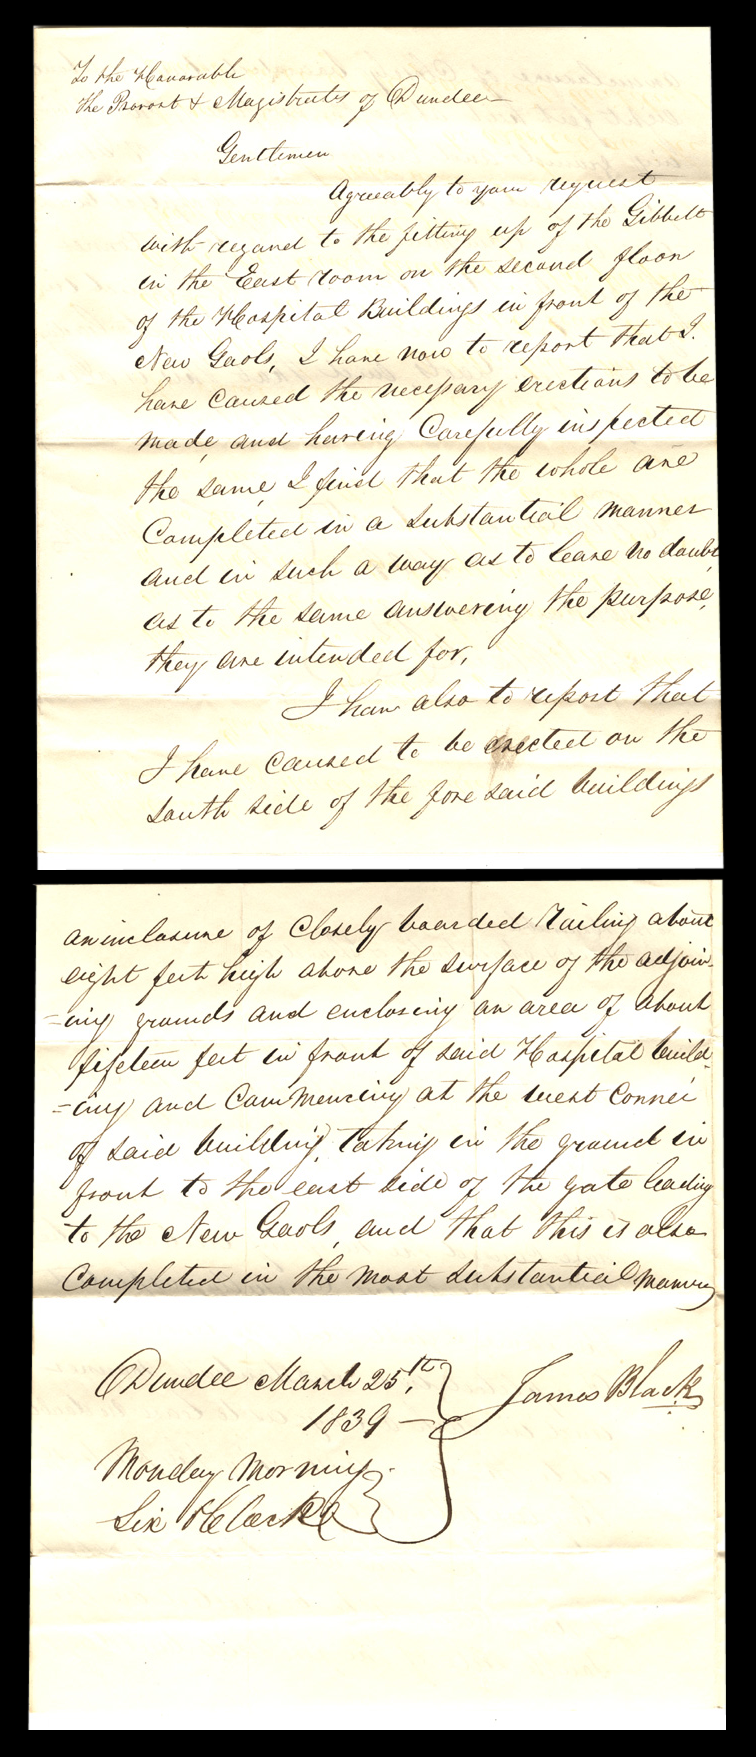 To the Honorable
the Provost & Magistrates of Dundee
Gentlemen
Agreeably to your request
with regard to the fitting up of the Gibbett
in the East room on the second floor
of the Hospital Buildings in front of the
New Gaols, I have now to report that I.
have caused the necessary erections to be
made, and having Carefully inspected
the same, I find that the whole are
Completed in a substantial manner
and in such a way as to leave no doubt
as to the same answering the purpose,
they are intended for,
I have also to report that
I have caused to be erected on the
South side of the fore said buildings
an inclosure of Closely boarded railing about
eight feet high above the surface of the adjoin-
=ing grounds and enclosing an area of about
fifteen feet in front of said Hospital build-
=ing and Commencing at the west Corner
of said building, taking in the ground in
front to the east side of the gate leading
to the New Gaols, and that this is also
Completed in the most substantial manner
Dundee March 25th,
1839 —
James Black
Monday Morning
Six OClock